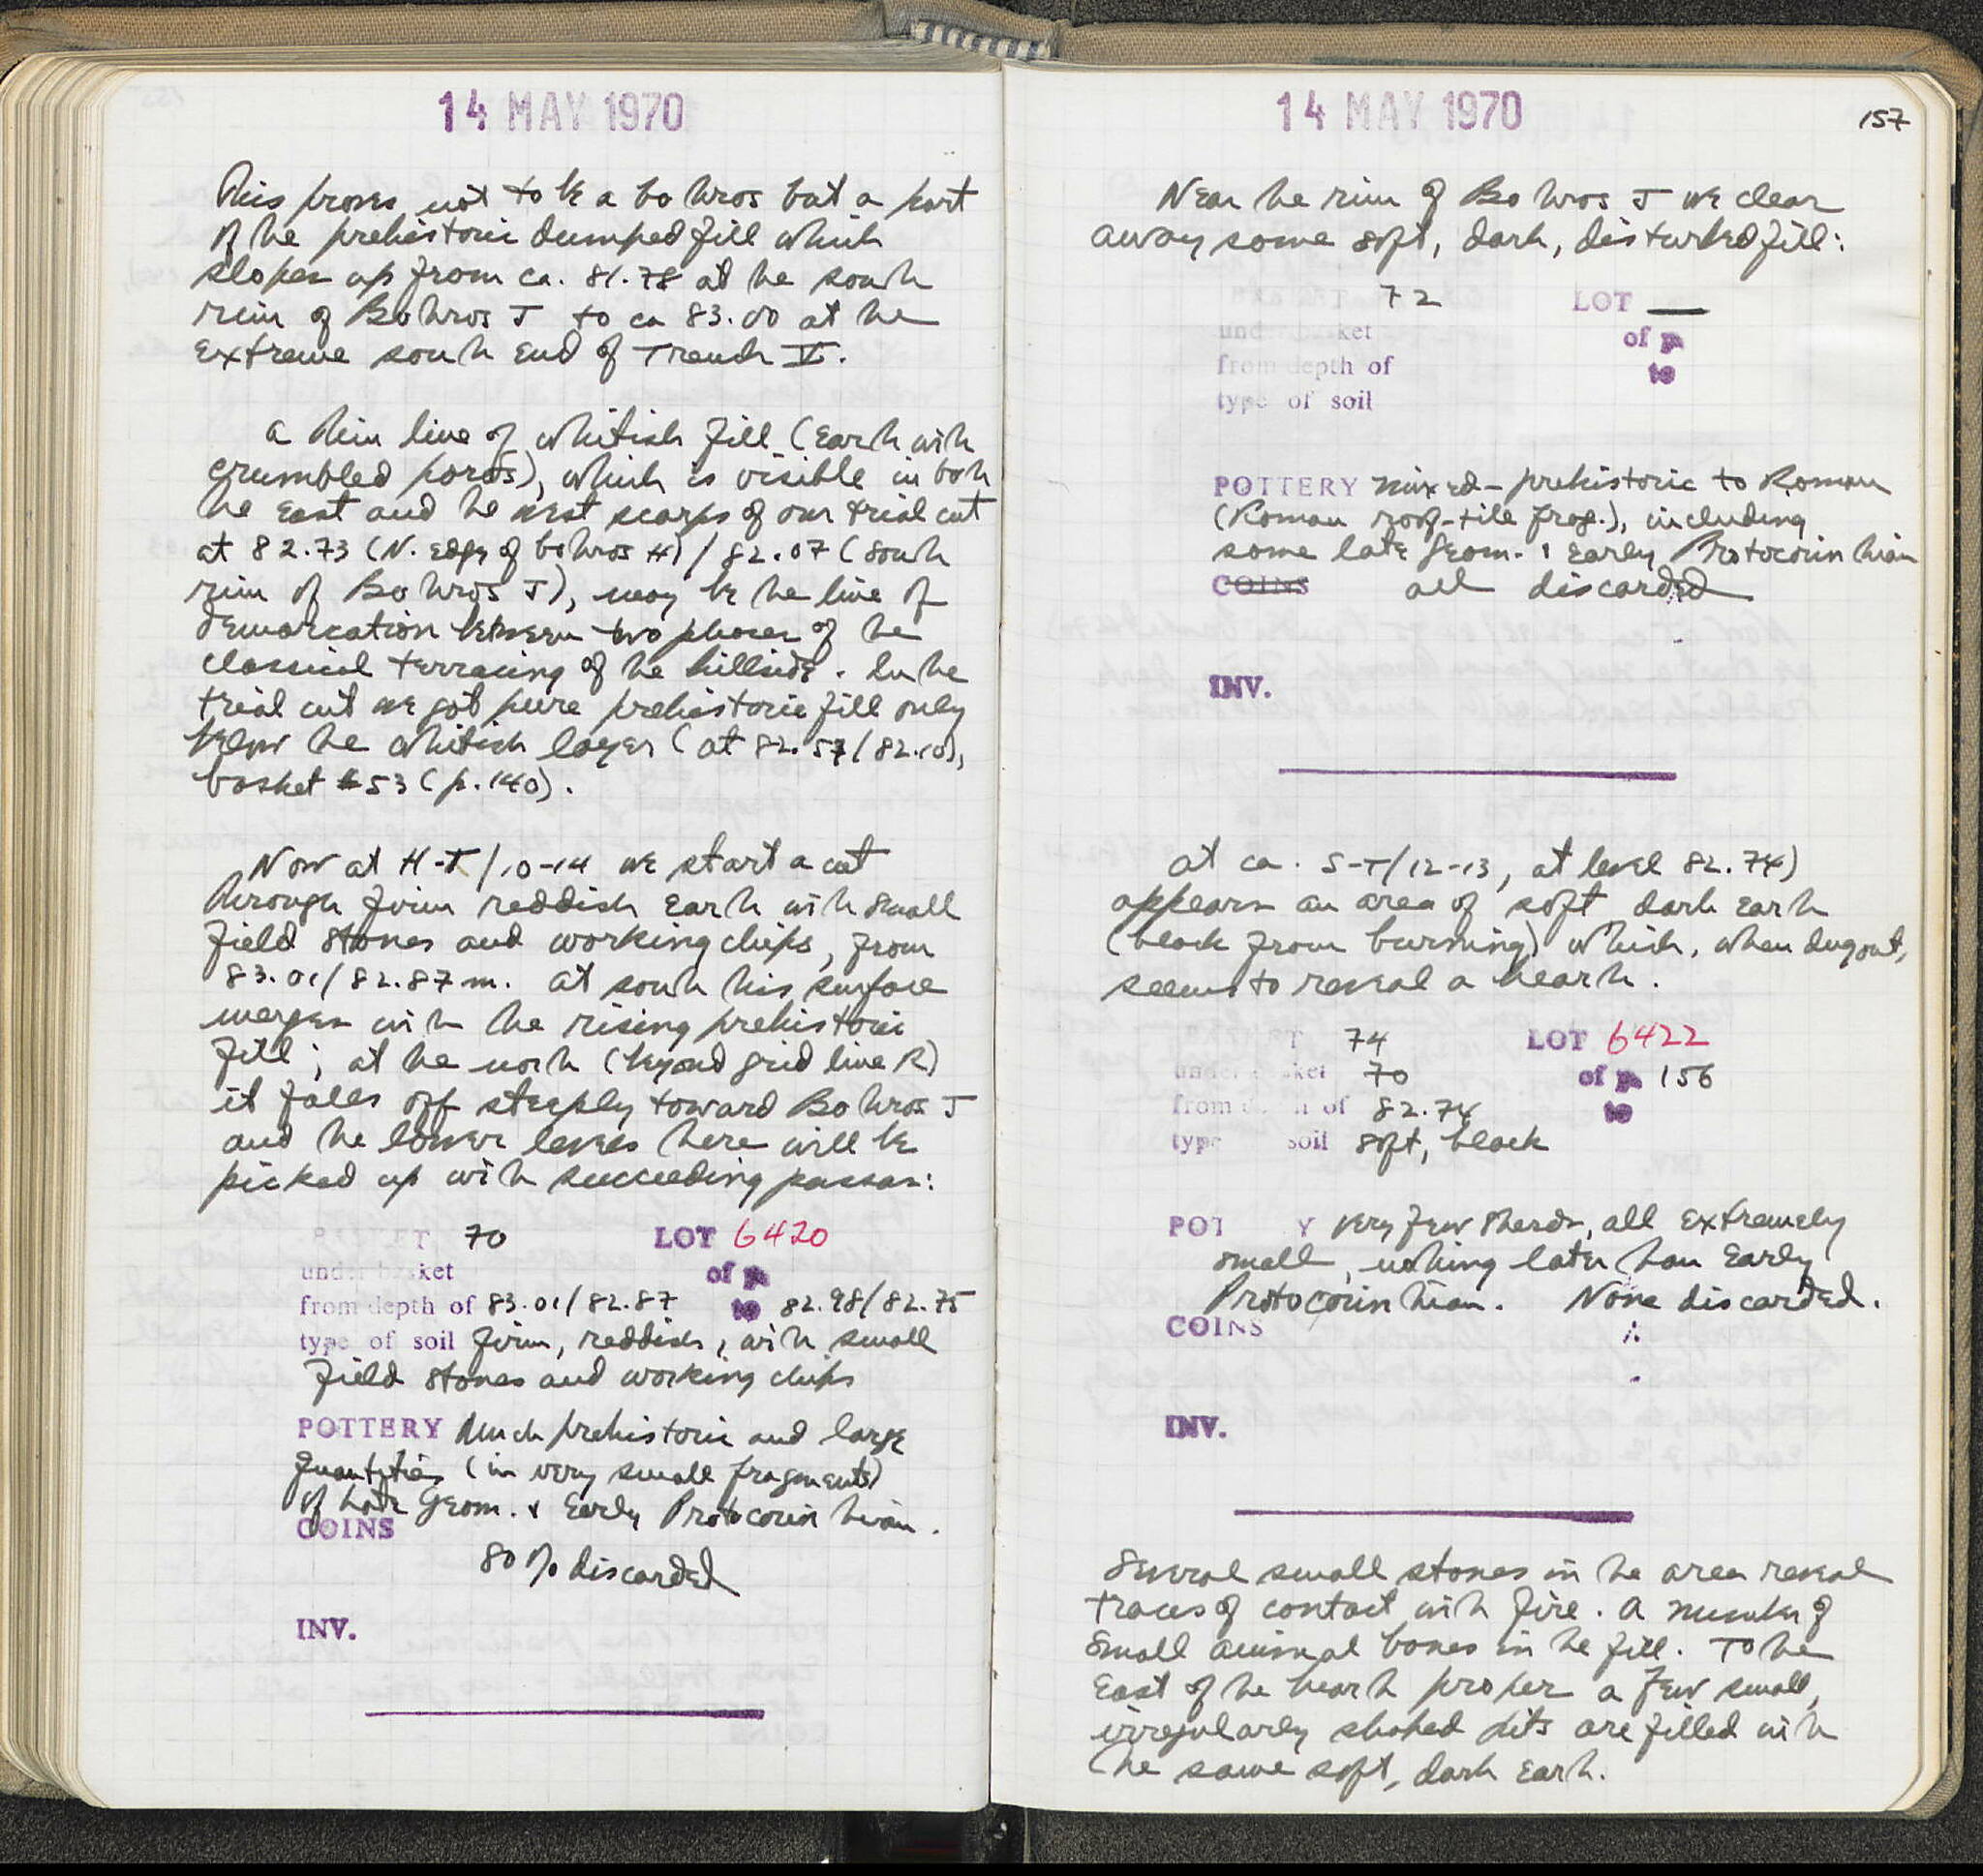 14 MAY 1970
This proves not to be a bothros but a part
of the prehistoric dumped fill which
slopes up from ca. 81.78 at the south
rim of Bothros J to ca 83.00 at the
extreme south end of Trench V.
A thin line of whitish fill (earth with
crumbled poros), which is visible in both
the east and the west scarps of our trial cut
at 82.73 (N. edge of bothros H) / 82.07 (south
rim of Bothros J), may be the line of
demarcation between two phases of the
classical terracing of the hillside. In the
trial cut we got pure prehistoric fill only
below the whitish layer (at 82.57/82.10),
basket #53 (p. 140).
Now at H-T/10-14 we start a cut
through firm reddish earth with small
field stones and working chips, from
83.01/82.87 m. At south this surface
merges with the rising prehistoric
fill; at the north (beyond grid line R)
it falls off steeply toward Bothros J
and the lower levels here will be
picked up with succeeding passes:
BASKET 70 LOT 6420
under basket of p.
from depth of 83.01/82.87 to 82.98/82.75
type of soil firm, reddish, with small
field stones and working chips
POTTERY Much prehistoric and large
quantities (in very small fragments)
of Late Geom. & Early Protocorinthian.
COINS
80% discarded
INV.
14 MAY 1970
157
Near the rim of Bothros J we clear
away some soft, dark, disturbed fill:
BASKET 72 LOT —
under basket of p.
from depth of to
type of soil
POTTERY mixed - prehistoric to Roman
(Roman roof-tile frag.), including
some late Geom. & early Protocorinthian
COINS all discarded
INV.
At ca. S-T/12-13, at level 82.74)
appears an area of soft dark earth
(black from burning) which, when dug out,
seems to reveal a hearth.
BASKET 74 LOT 6422
under basket 70 of p. 156
from depth of 82.74 to
type of soil soft, black
POTTERY very few sherds, all extremely
small, nothing later than Early
Protocorinthian. None discarded.
COINS
INV.
Several small stones in the area reveal
traces of contact with fire. A number of
small animal bones in the fill. To the
east of the hearth proper a few small,
irregularly shaped pits are filled with
the same soft, dark earth.